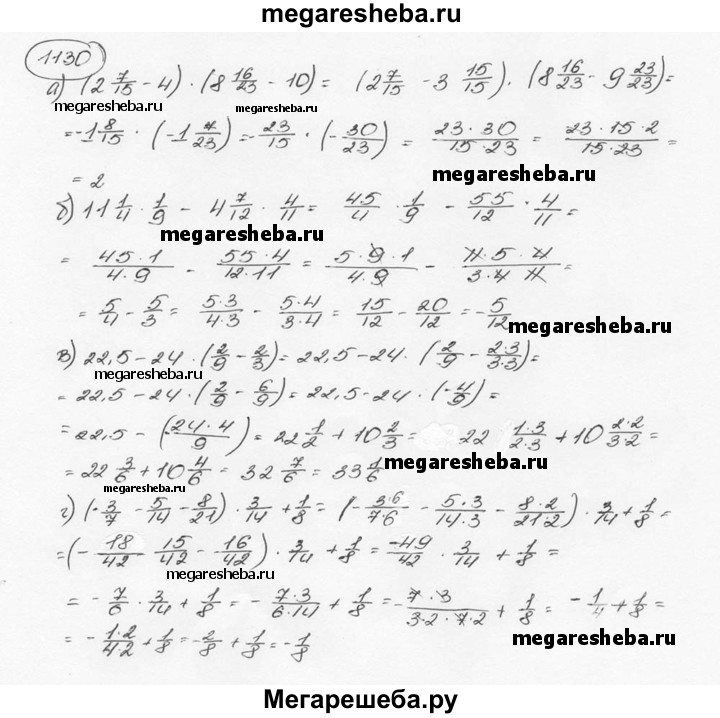 megaresheba.ru
1130
а) (2 7/15 - 4) · (8 16/23 - 10) = (2 7/15 - 3 15/15) · (8 16/23 - 9 23/23) =
megaresheba.ru megaresheba.ru
= -1 8/15 · (-1 7/23) = -23/15 · (-30/23) = 23·30/15·23 = 23·15·2/15·23 =
megaresheba.ru
= 2
б) 11 1/4 · 1/9 - 4 7/12 · 4/11 = 45/4 · 1/9 - 55/12 · 4/11 =
megaresheba.ru
= 45·1/4·9 - 55·4/12·11 = 5·9·1/4·9 - 11·5·4/3·4·11 =
= 5/4 - 5/3 = 5·3/4·3 - 5·4/3·4 = 15/12 - 20/12 = -5/12
megaresheba.ru
в) 22,5 - 24 · (2/9 - 2/3) = 22,5 - 24 · (2/9 - 2·3/3·3) =
megaresheba.ru
= 22,5 - 24 · (2/9 - 6/9) = 22,5 - 24 · (-4/9) =
= 22,5 - (24·4/9) = 22 1/2 + 10 2/3 = 22 1·3/2·3 + 10 2·2/3·2 =
= 22 3/6 + 10 4/6 = 32 7/6 = 33 1/6
megaresheba.ru
megaresheba.ru
г) (-3/7 - 5/14 - 8/21) · 3/14 + 1/8 = (-3·6/7·6 - 5·3/14·3 - 8·2/21·2) · 3/14 + 1/8 =
= (-18/42 - 15/42 - 16/42) · 3/14 + 1/8 = -49/42 · 3/14 + 1/8 =
megaresheba.ru
= -7/6 · 3/14 + 1/8 = -7·3/6·14 + 1/8 = -7·3/3·2·7·2 + 1/8 = -1/4 + 1/8 =
= -1·2/4·2 + 1/8 = -2/8 + 1/8 = -1/8
megaresheba.ru
Мегарешеба.ру